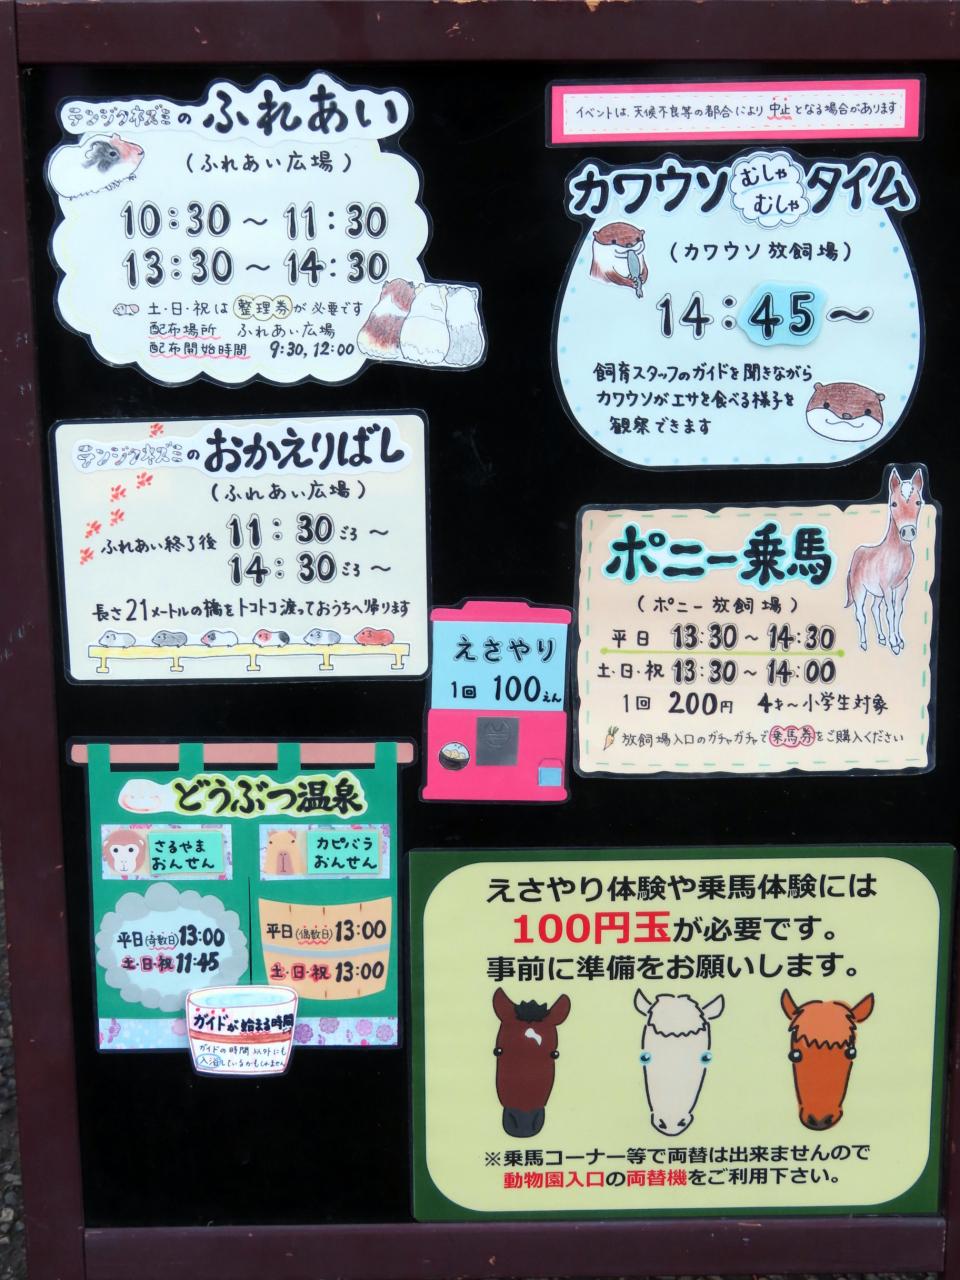 テンジクネズミの ふれあい
(ふれあい広場)
10:30 ～ 11:30
13:30 ～ 14:30
土・日・祝は 整理券が必要です
配布場所 ふれあい広場
配布開始時間 9:30, 12:00
イベントは、天候不良等の都合により 中止 となる場合があります
カワウソ むしゃ むしゃ タイム
(カワウソ放飼場)
14:45～
飼育スタッフのガイドを聞きながら
カワウソがエサを食べる様子を
観察できます
テンジクネズミの おかえりばし
(ふれあい広場)
ふれあい終了後 11:30ごろ～
14:30ごろ～
長さ21メートルの橋をトコトコ渡っておうちへ帰ります
えさやり
1回 100えん
ポニー乗馬
(ポニー放飼場)
平日 13:30～14:30
土・日・祝 13:30～14:00
1回 200円 4才～小学生対象
放飼場入口のガチャガチャで乗馬券をご購入ください
どうぶつ温泉
さるやま
おんせん
平日(奇数日)13:00
土・日・祝 11:45
カピバラ
おんせん
平日(偶数日)13:00
土・日・祝 13:00
ガイドが始まる時間
ガイドの時間以外にも
入浴しているかもしれません
えさやり体験や乗馬体験には
100円玉が必要です。
事前に準備をお願いします。
※乗馬コーナー等で両替は出来ませんので
動物園入口の両替機をご利用下さい。